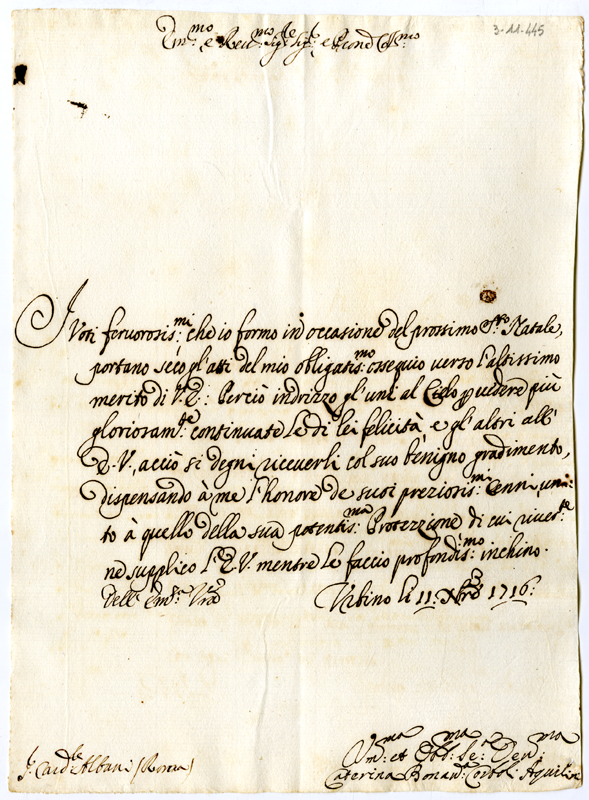 3-11-445
Em:mo e Reu:mo Sig:re Sig:r e Pron Col:mo
I Voti feruorosis:mi che io formo in occasione del prossimo S:to Natale,
portano seco gl'atti del mio obligatis:mo ossequio verso l'altissimo
merito di V: E: Perciò indrizzo gl'uni al Cielo p vedere più
gloriosam:te continuate le di lei felicità e gl'altri all'
E. V., acciò si degni riceuerli col suo benigno gradimento,
dispensando à me l'honore de suoi preziosis:mi Cenni, uni=
to à quello della sua potentis:ma Protezzione di cui riuer:te
ne supplico l'E. V. mentre le faccio profondis:mo inchino.
Dell' Em:za Vra
Vrbino li 11: Xbre 1716:
S:r Card:le Albani (Roma)
Vm:ma et Obb:ma Se:a Deu:ma
Caterina Aquilin